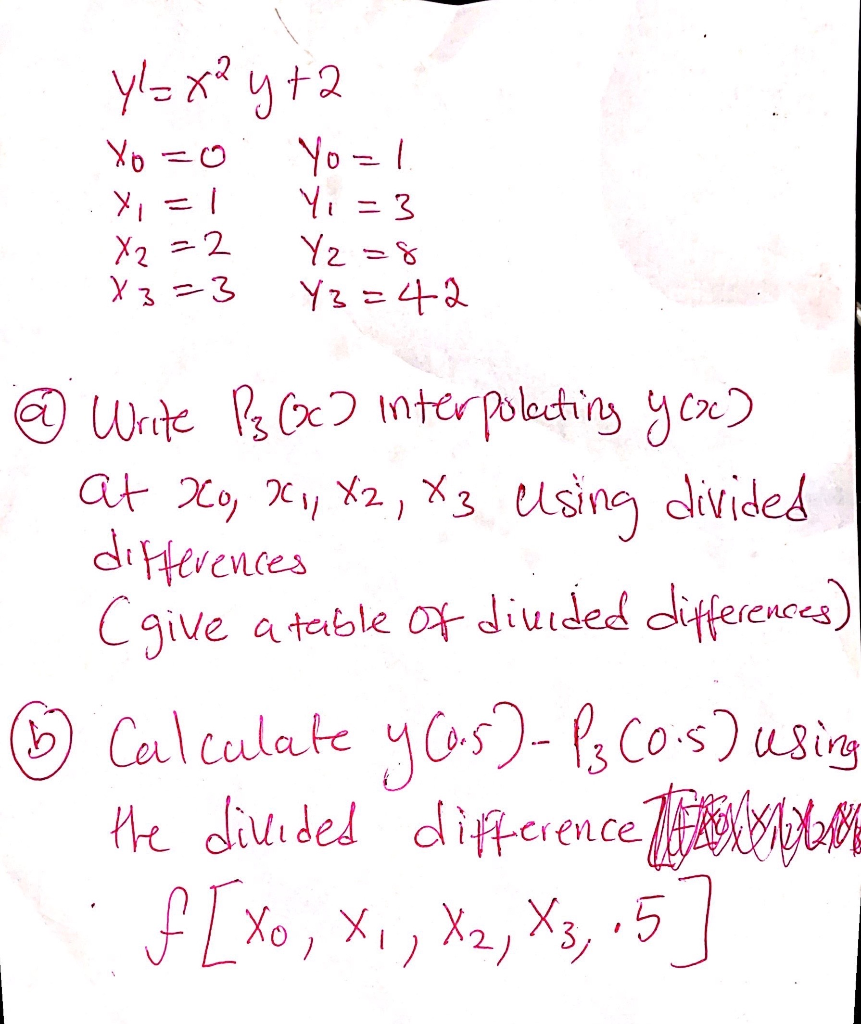 y'= x² y +2
X₀ = 0 Y₀ = 1
X₁ = 1 Y₁ = 3
X₂ = 2 Y₂ = 8
X₃ = 3 Y₃ = 42
ⓐ Write P₃(x) interpolating y(x)
at x₀, x₁, X₂, X₃ using divided
differences
(give a table of divided differences)
ⓑ Calculate y(0.5) - P₃(0.5) using
the divided difference
f[X₀, X₁, X₂, X₃, .5]